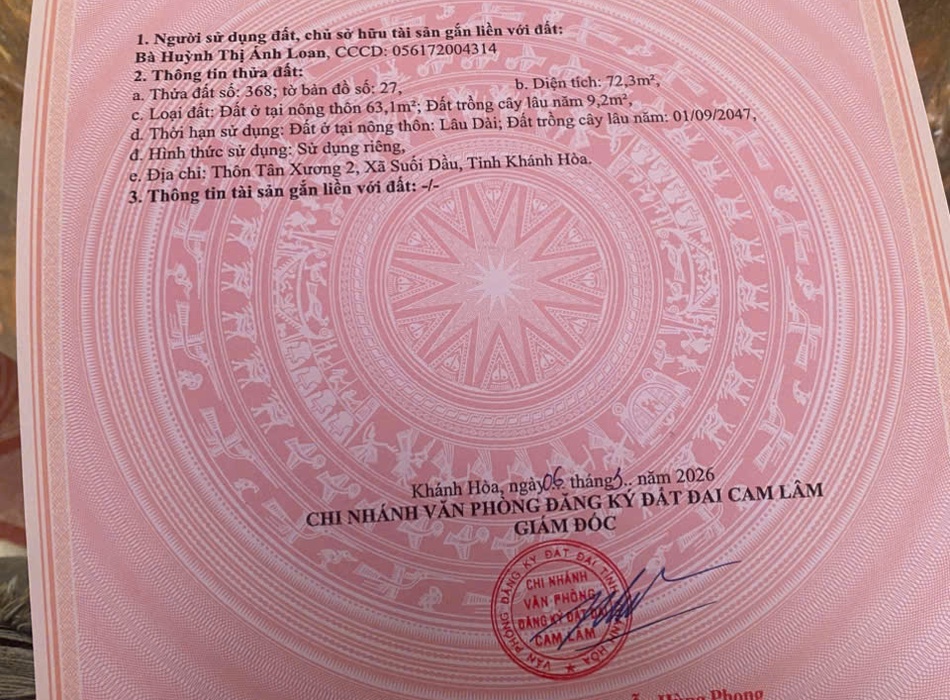 1. Người sử dụng đất, chủ sở hữu tài sản gắn liền với đất:
Bà Huỳnh Thị Ánh Loan, CCCD: 056172004314
2. Thông tin thửa đất:
a. Thửa đất số: 368; tờ bản đồ số: 27, b. Diện tích: 72,3m²,
c. Loại đất: Đất ở tại nông thôn 63,1m²; Đất trồng cây lâu năm 9,2m²,
d. Thời hạn sử dụng: Đất ở tại nông thôn: Lâu Dài; Đất trồng cây lâu năm: 01/09/2047,
đ. Hình thức sử dụng: Sử dụng riêng,
e. Địa chỉ: Thôn Tân Xương 2, Xã Suối Dầu, Tỉnh Khánh Hòa.
3. Thông tin tài sản gắn liền với đất: -/-
Khánh Hòa, ngày 06 tháng 3 năm 2026
CHI NHÁNH VĂN PHÒNG ĐĂNG KÝ ĐẤT ĐAI CAM LÂM
GIÁM ĐỐC
VĂN PHÒNG ĐĂNG KÝ ĐẤT ĐAI TỈNH KHÁNH HÒA
CHI NHÁNH
VĂN PHÒNG
ĐĂNG KÝ ĐẤT ĐAI
CAM LÂM
Hồng Phong